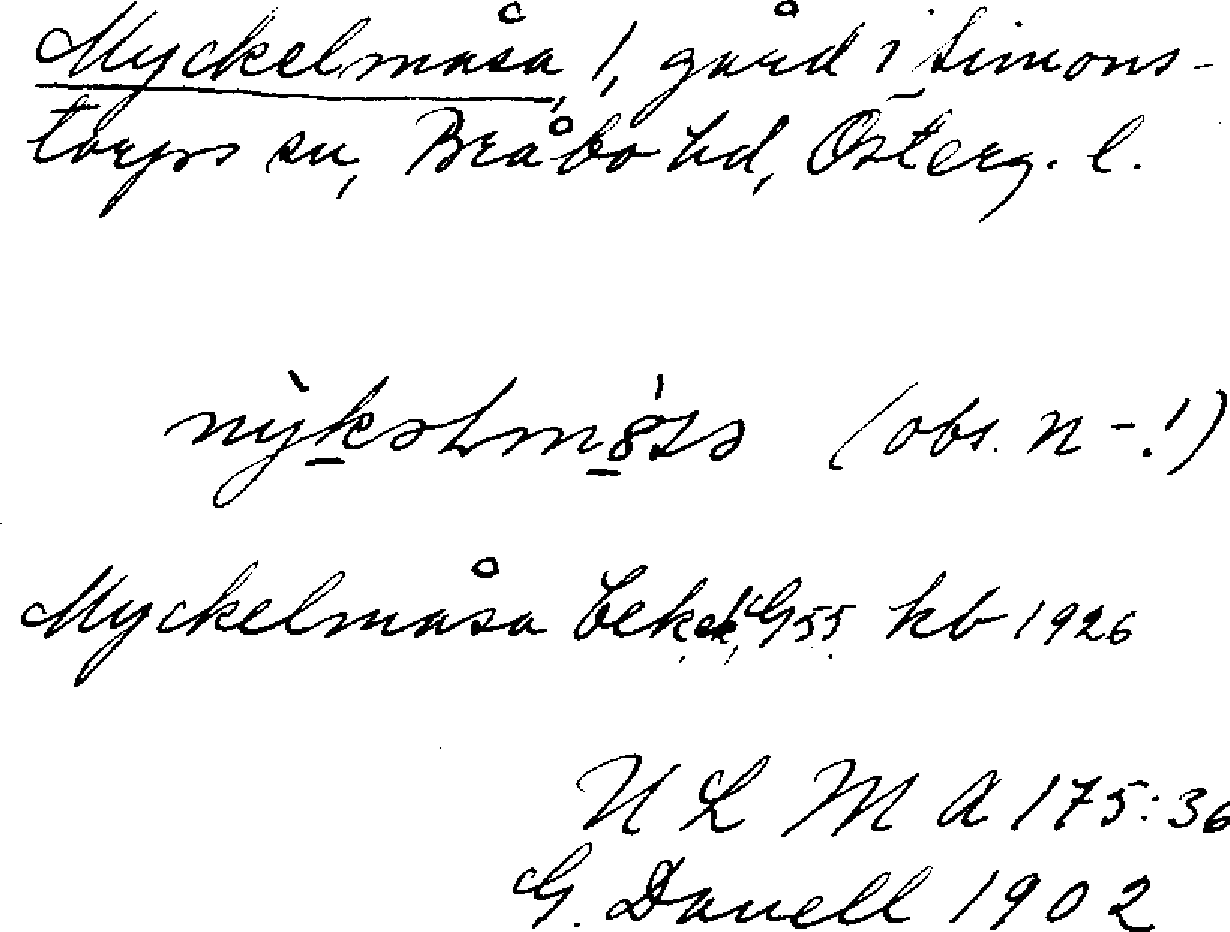 Myckelmåsa, 1, gård i Simons-
torps sn, Bråbo hd, Österg. l.
nỳkəlmósa (obs. n-!)
Myckelmåsa bek G 55 kb 1926
U L M A 175:36
G. Danell 1902